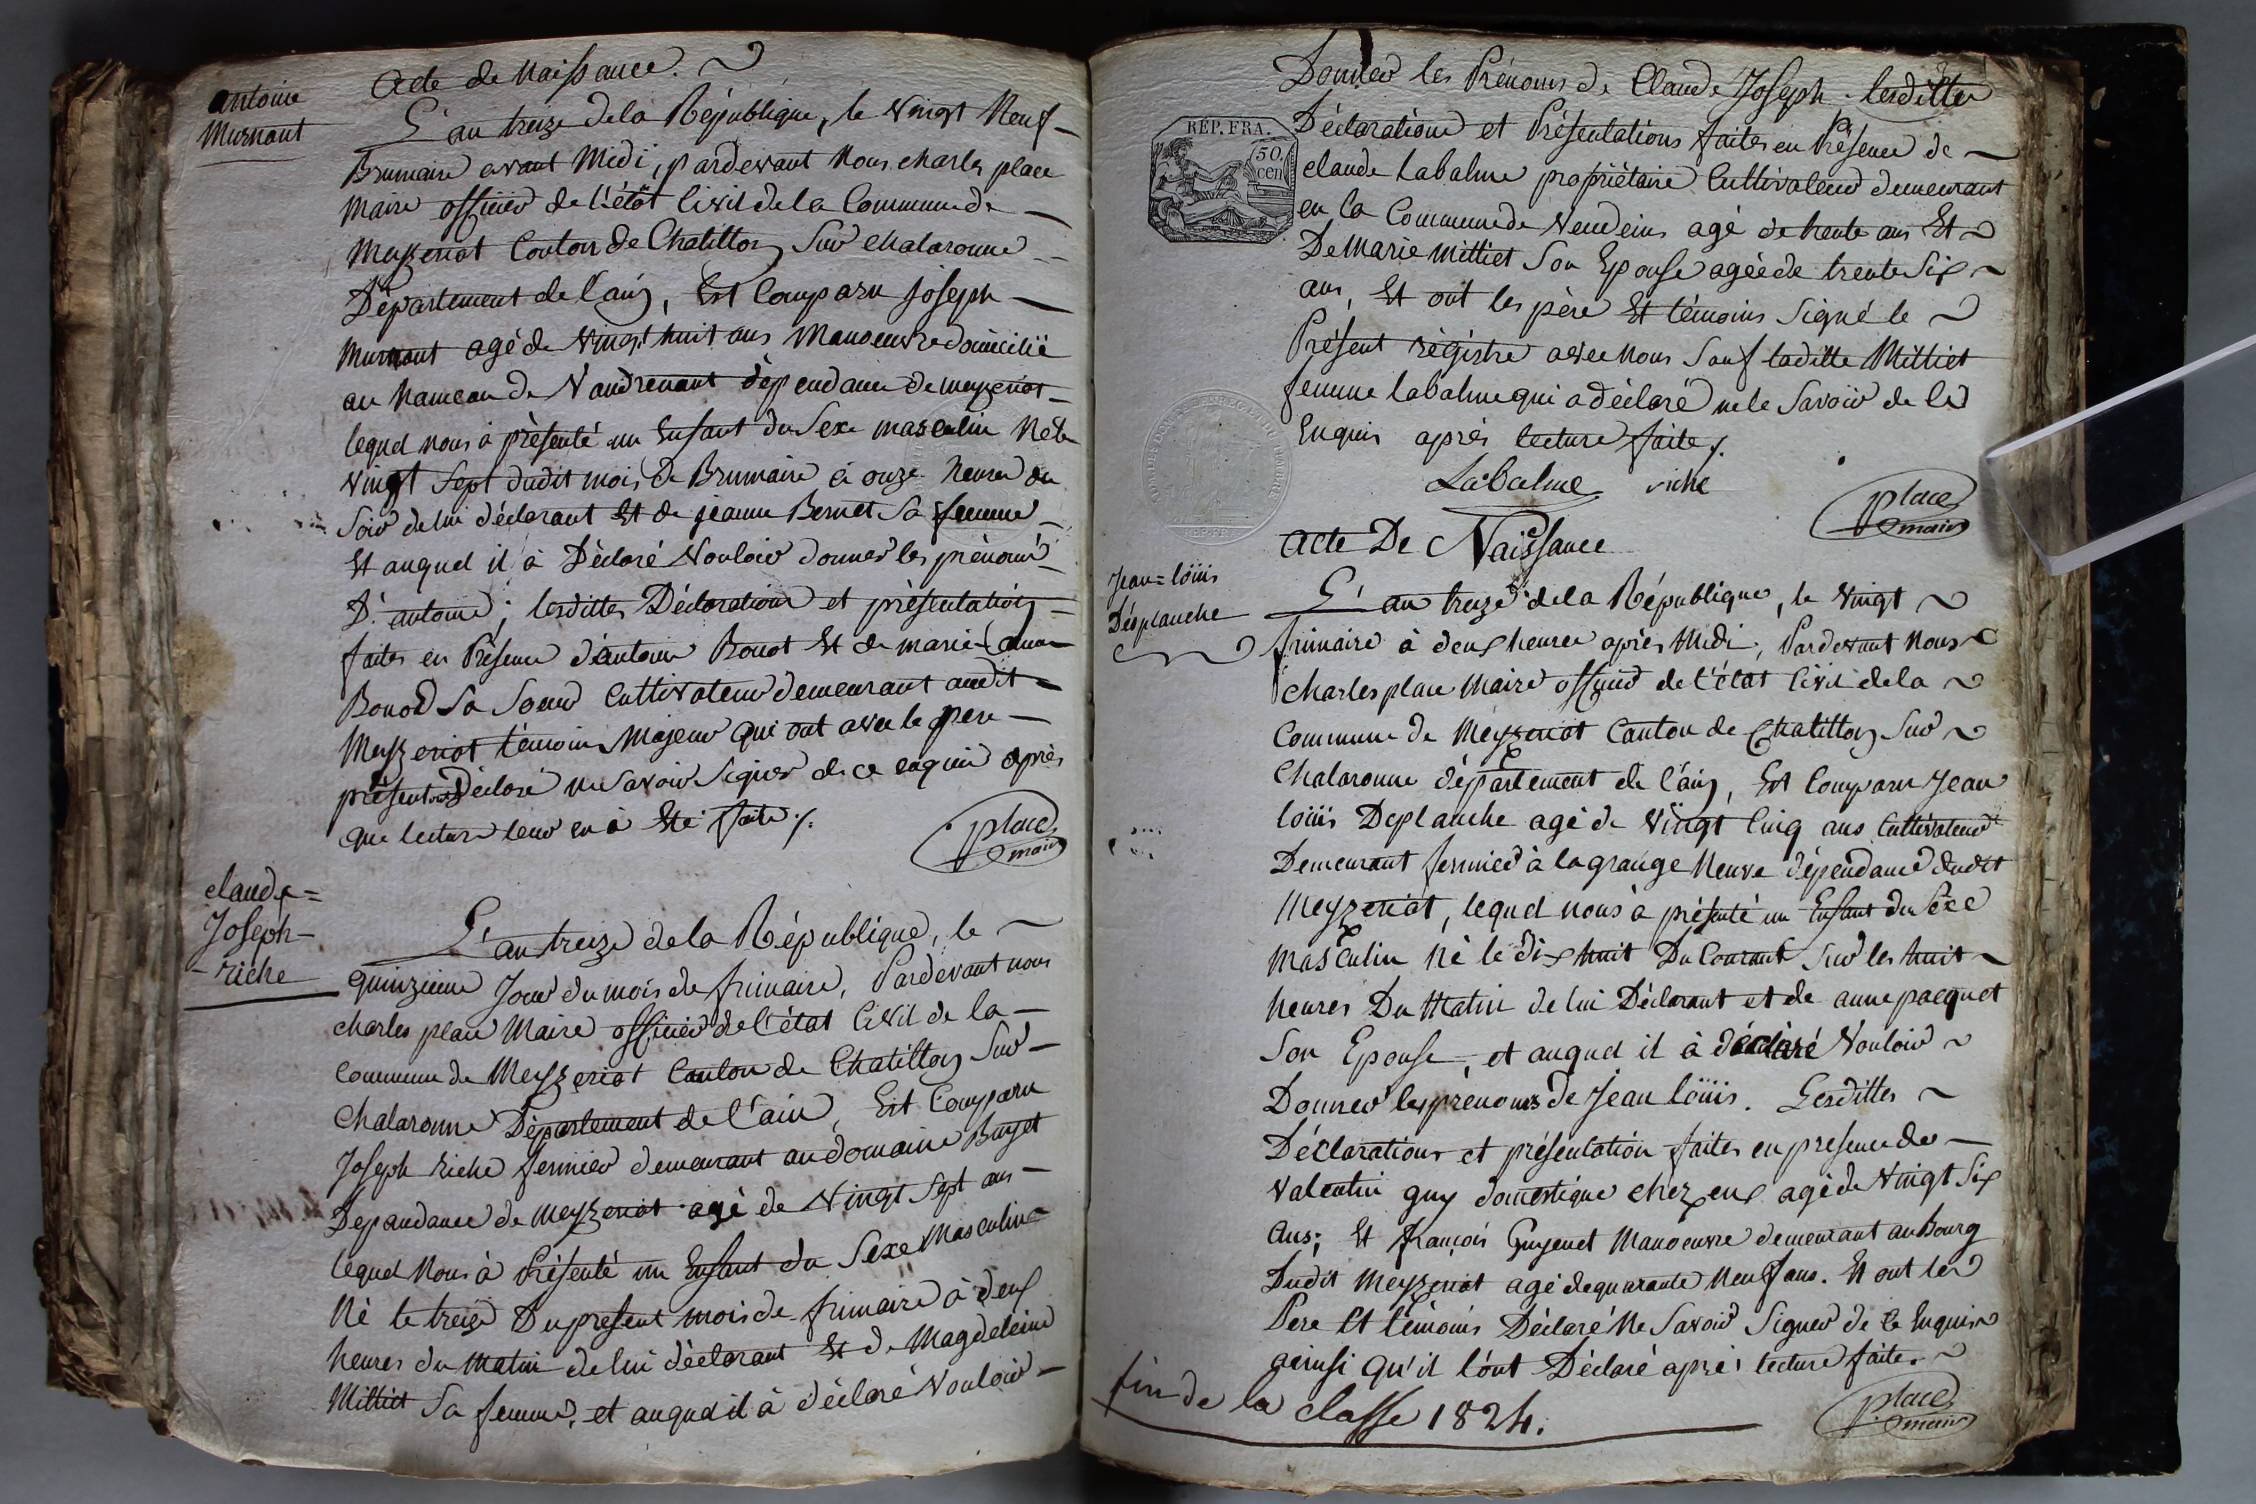 antoine
Murnant
Acte de Naissance.
L'an treize de la République, le Vingt Neuf
Brumaire avant Midi, pardevant Nous charles place
Maire officier de l'étât Civil de la Commune de
Meyzeriat Canton de Chatillon Sur chalaronne
Département de l'ain, Est Comparu Joseph
Murnant agé de Vingt huit ans Manoeuvre domicilié
au hameau de Vaudrenant dépendance de meyzeriat
lequel nous à présenté un Enfant du Sexe masculin Né le
vingt Sept dudit mois De Brumaire à onze heures du
Soir de lui déclarant Et de jeanne Bernet Sa femme
Et auquel il à Déclaré Vouloir donner les prénoms
D'antoine; lesdittes Déclaration et présentation
faites en Présence d'antoine Bonot Et de marie
Bonod Sa Soeur Cultivateur demeurant audit
Meyzeriat témoins Majeur qui ont avec le pere
présent Déclaré ne Savoir Signer de ce enquis après
que lecture leur en à Eté faite ./.
place
maire
claude=
Joseph
riche
L'an treize de la République, le
quinzieme Jour du mois de frimaire, Pardevant nous
charles place Maire officier de l'état Civil de la
commune de Meyzeriat Canton de Chatillon Sur
Chalaronne Département de l'ain, Est Comparu
Joseph riche fermier demeurant au domaine Buget
Dépandance de meyzeriat agé de Vingt Sept ans
lequel Nous à Présenté un Enfant du Sexe Masculin
Né le treize Du présent mois de frimaire à deux
heures du matin de lui déclarant Et de Magdeleine
Milliet Sa femme, et auquel il à déclaré Vouloir
Donner les Prénoms de Claude Joseph. lesdittes
RÉP. FRA.
50.
cen
Déclaration et Présentations faites en Présence de
claude Labalme propriétaire Cultivateur demeurant
en la Commune de Vendeins agé de trente ans Et
De Marie Milliet Son Epouse agée de trente Six
ans, Et ont les père Et témoins Signé le
Présent régistre avec Nous Sauf laditte Milliet
femme labalme qui a déclaré ne le Savoir de ce
Enquis après lecture faite ./.
Labalme riche
place
maire
Acte De Naissance
Jean=löuis
Désplanche
L'an treize de la République, le Vingt
frimaire à deux heures après Midi, Pardevant Nous
Charles place Maire officier de l'état Civil de la
Commune de Meyzeriat Canton de Chatillon Sur
Chalaronne département de l'ain, Est Comparu Jean
löuis Deplanche agé de Vingt Cinq ans Cultivateur
Demeurant fermier à la grange Neuve dépendance dudit
Meyzeriat, lequel nous à présenté un Enfant du Sexe
Masculin Né le dix huit Du Courant Sur les huit
heures Du Matin de lui Déclarant et de anne pacquet
Son Epouse, et auquel il à déclaré Vouloir
Donner les prénoms de Jean löuis. Lesdittes
Déclarations et présentation faites en presence de
Valentin guy domestique chez eux agé de Vingt Six
ans; Et françois Guyenet Manoeuvre demeurant au Bourg
Dudit Meyzeriat agé de quarante Neuf ans. Et ont les
Pere Et témoins Déclaré Ne Savoir Signer de Ce Enquis
ainsi qu'il l'ont Déclaré après lecture faite.
place
maire
fin de la classe 1824.